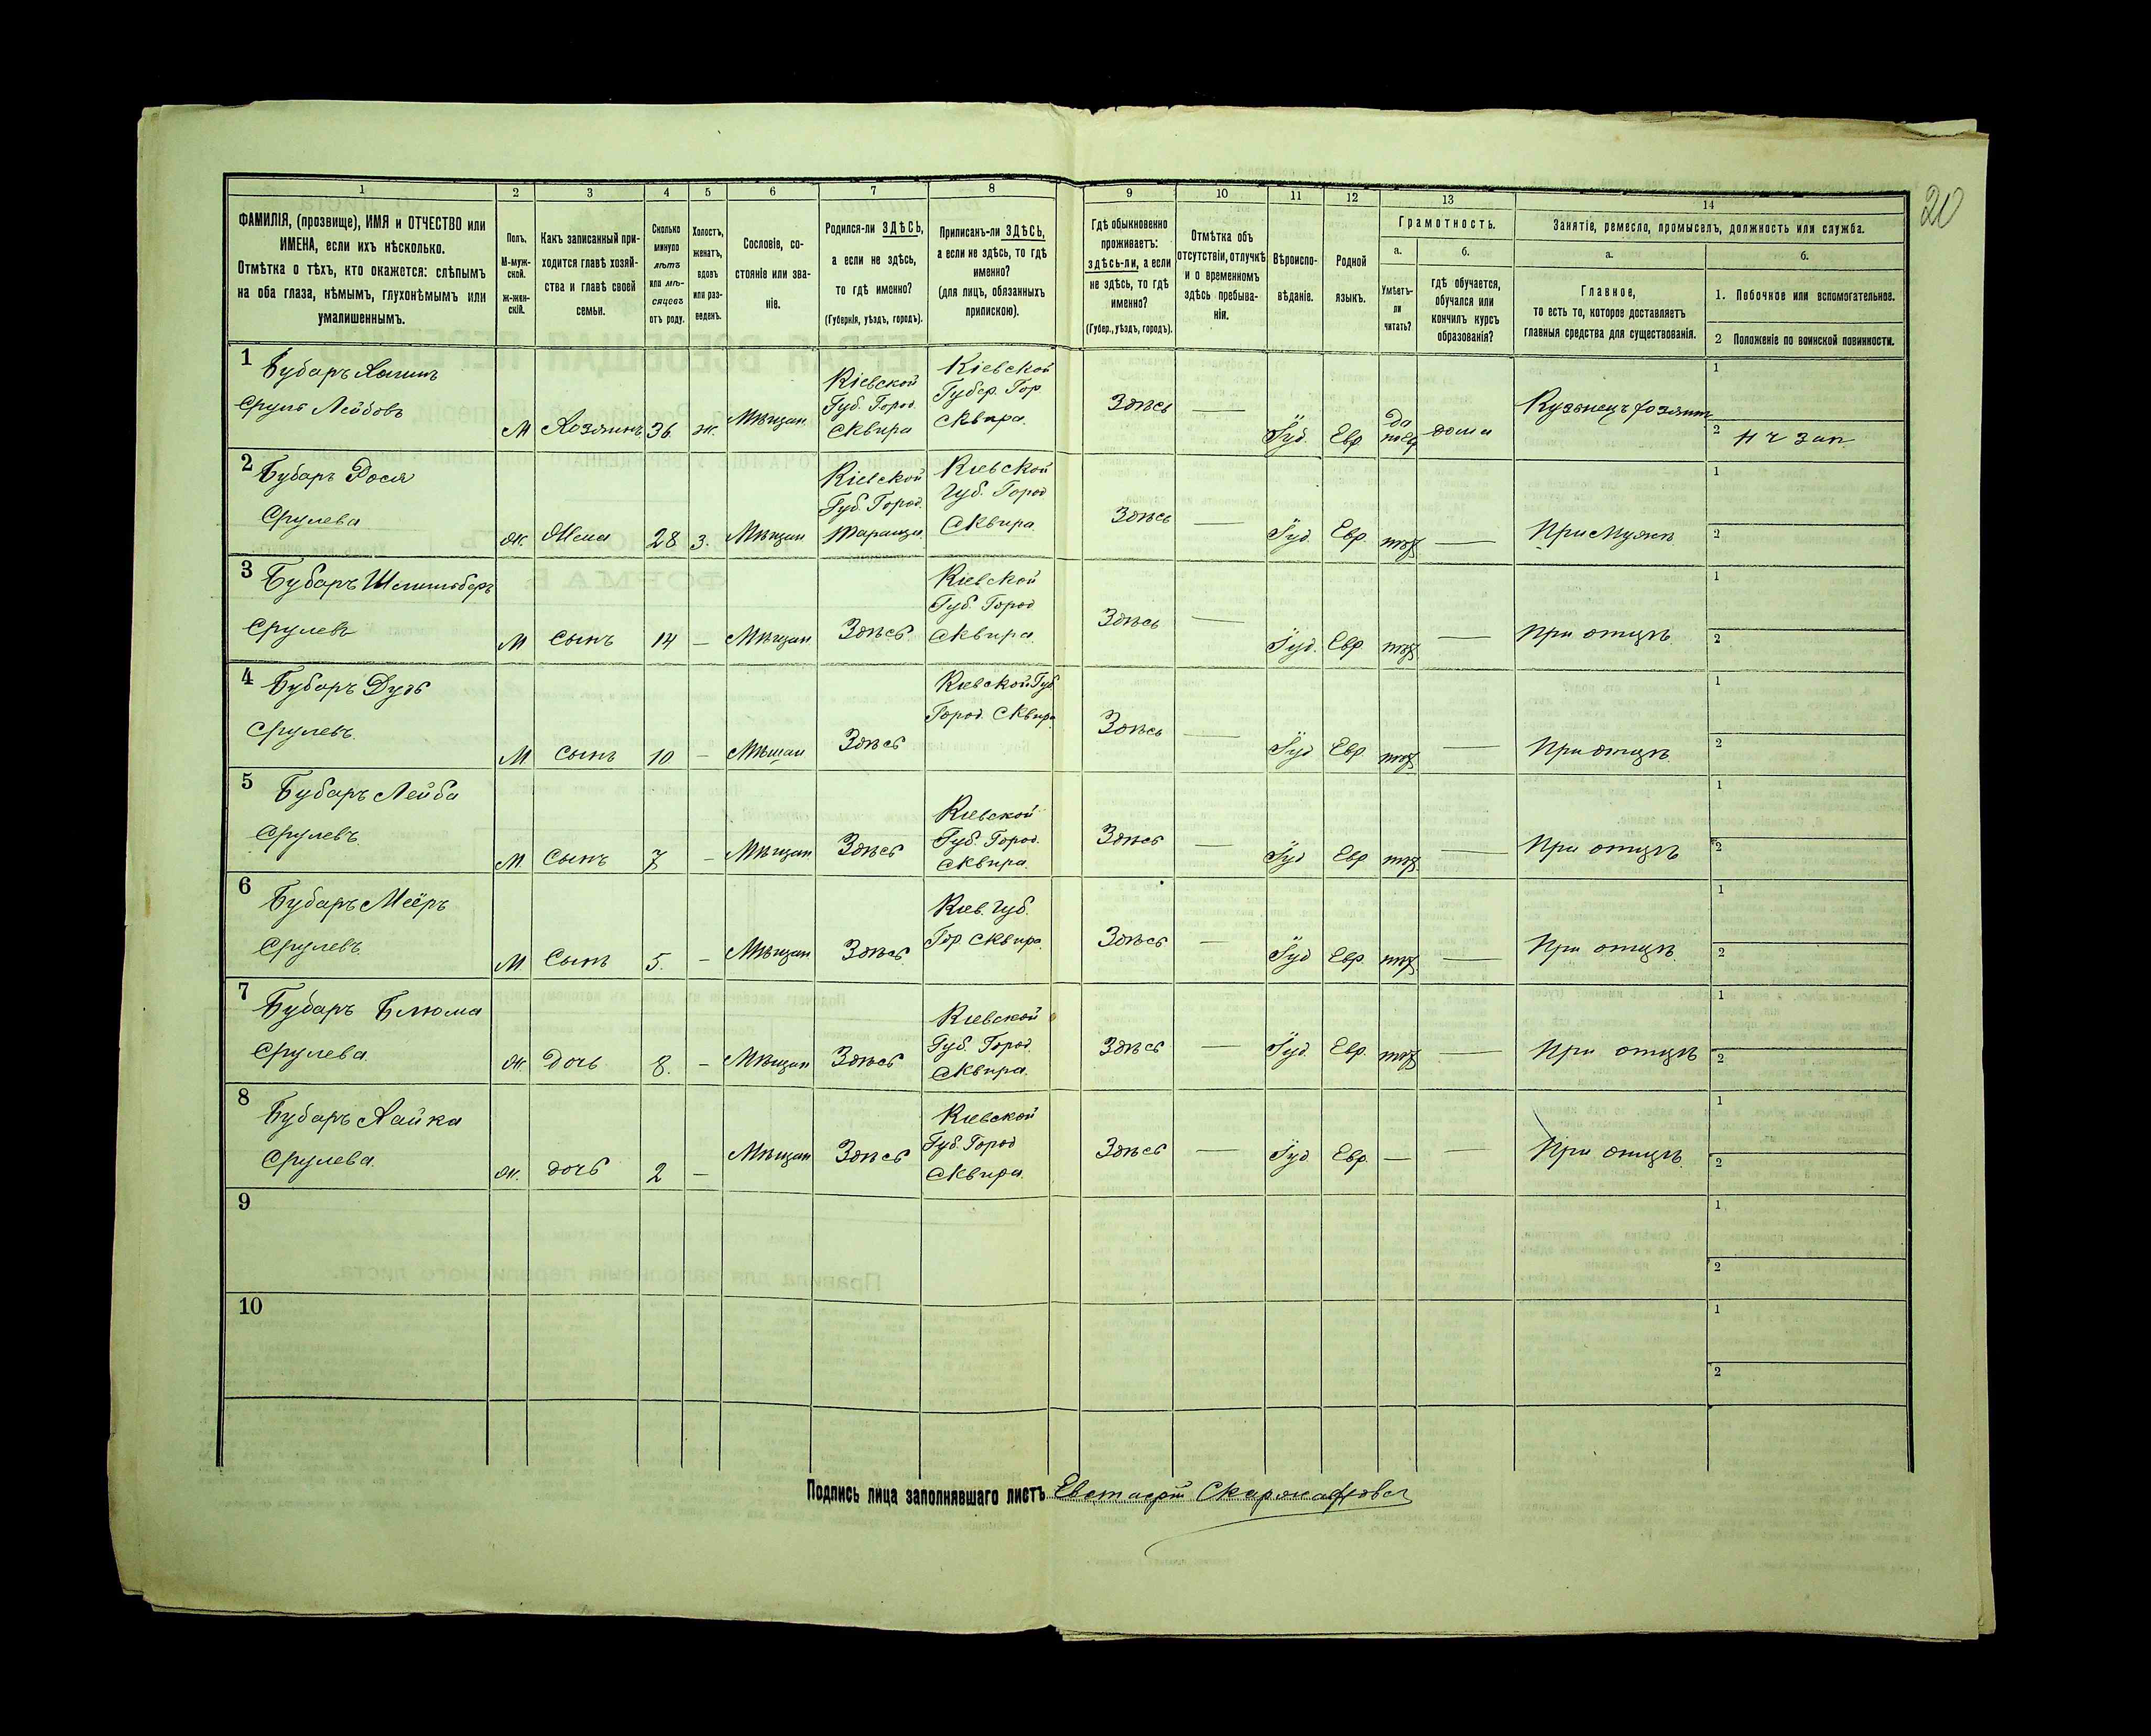 20
1 2 3 4 5 6 7 8 9 10 11 12 13 14
ФАМИЛІЯ, (прозвище), ИМЯ и ОТЧЕСТВО или
ИМЕНА, если ихъ нѣсколько.
Отмѣтка о тѣхъ, кто окажется: слѣпымъ
на оба глаза, нѣмымъ, глухонѣмымъ или
умалишеннымъ.
Полъ.
М-муж-
ской.
ж-жен-
скій.
Какъ записанный при-
ходится главѣ хозяй-
ства и главѣ своей
семьи.
Сколько
минуло
лѣтъ
или мѣ-
сяцевъ
отъ роду.
Холостъ,
женатъ,
вдовъ
или раз-
веденъ.
Сословіе, со-
стояніе или зва-
ніе.
Родился-ли ЗДѢСЬ,
а если не здѣсь,
то гдѣ именно?
(Губернія, уѣздъ, городъ).
Приписанъ-ли ЗДѢСЬ,
а если не здѣсь, то гдѣ
именно?
(для лицъ, обязанныхъ
припискою).
Гдѣ обыкновенно
проживаетъ:
здѣсь-ли, а если
не здѣсь, то гдѣ
именно?
(Губер., уѣздъ, городъ).
Отмѣтка объ
отсутствіи, отлучкѣ
и о временномъ
здѣсь пребыва-
ніи.
Вѣроиспо-
вѣданіе.
Родной
языкъ.
Грамотность.
а.
Умѣетъ-
ли
читать?
б.
гдѣ обучается,
обучался или
кончилъ курсъ
образованія?
Занятіе, ремесло, промыселъ, должность или служба.
а.
Главное,
то есть то, которое доставляетъ
главныя средства для существованія.
б.
1. Побочное или вспомогательное.
2 Положеніе по воинской повинности.
1 Бубаръ
Сруль Лейбовъ
М Хозяинъ 36 ж. Мѣщан
Кіевской
Губ. Город.
Сквира
Кіевской
Губер. Гор.
Сквира.
Здѣсь — Іуд. Евр.
да
по Евр
дома
Кузнецъ хозяинъ
1
2 Н ч зап
2 Бубаръ Рося
Срулева
Ж. Жена 28 з. Мѣщан
Кіевской
Губ. Город.
Таращи
Кіевской
Губ. Город
Сквира
Здѣсь — Іуд. Евр. нѣт — При Мужѣ
1
2
3 Бубаръ
Срулевъ
М Сынъ 14 — Мѣщан Здѣсь
Кіевской
Губ. Город.
Сквира.
Здѣсь — Іуд. Евр. нѣт — При отцѣ
1
2
4 Бубаръ Дудь
Срулевъ.
М Сынъ 10 — Мѣщан Здѣсь
Кіевской Губ.
Город. Сквира
Здѣсь — Іуд Евр нѣт — При отцѣ
1
2
5 Бубаръ Лейба
Срулевъ.
М. Сынъ 7 — Мѣщан Здѣсь
Кіевской
Губ. Город.
Сквира.
Здѣсь — Іуд Евр нѣт — При отцѣ
1
2
6 Бубаръ Меёръ
Срулевъ.
М Сынъ 5. — Мѣщан Здѣсь
Кіев. Губ.
Гор Сквира
Здѣсь — Іуд Евр. нѣт — При отцѣ
1
2
7 Бубаръ Блюма
Срулева.
Ж. Дочь 8. — Мѣщан Здѣсь
Кіевской
Губ. Город.
Сквира.
Здѣсь — Іуд. Евр. нѣт — При отцѣ
1
2
8 Бубаръ Хайка
Срулева.
Ж. дочь 2 — Мѣщан Здѣсь
Кіевской
Губ. Город
Сквира.
Здѣсь — Іуд. Евр. — — При отцѣ
1
2
9
1
2
10
1
2
Подпись лица заполнявшаго листъ